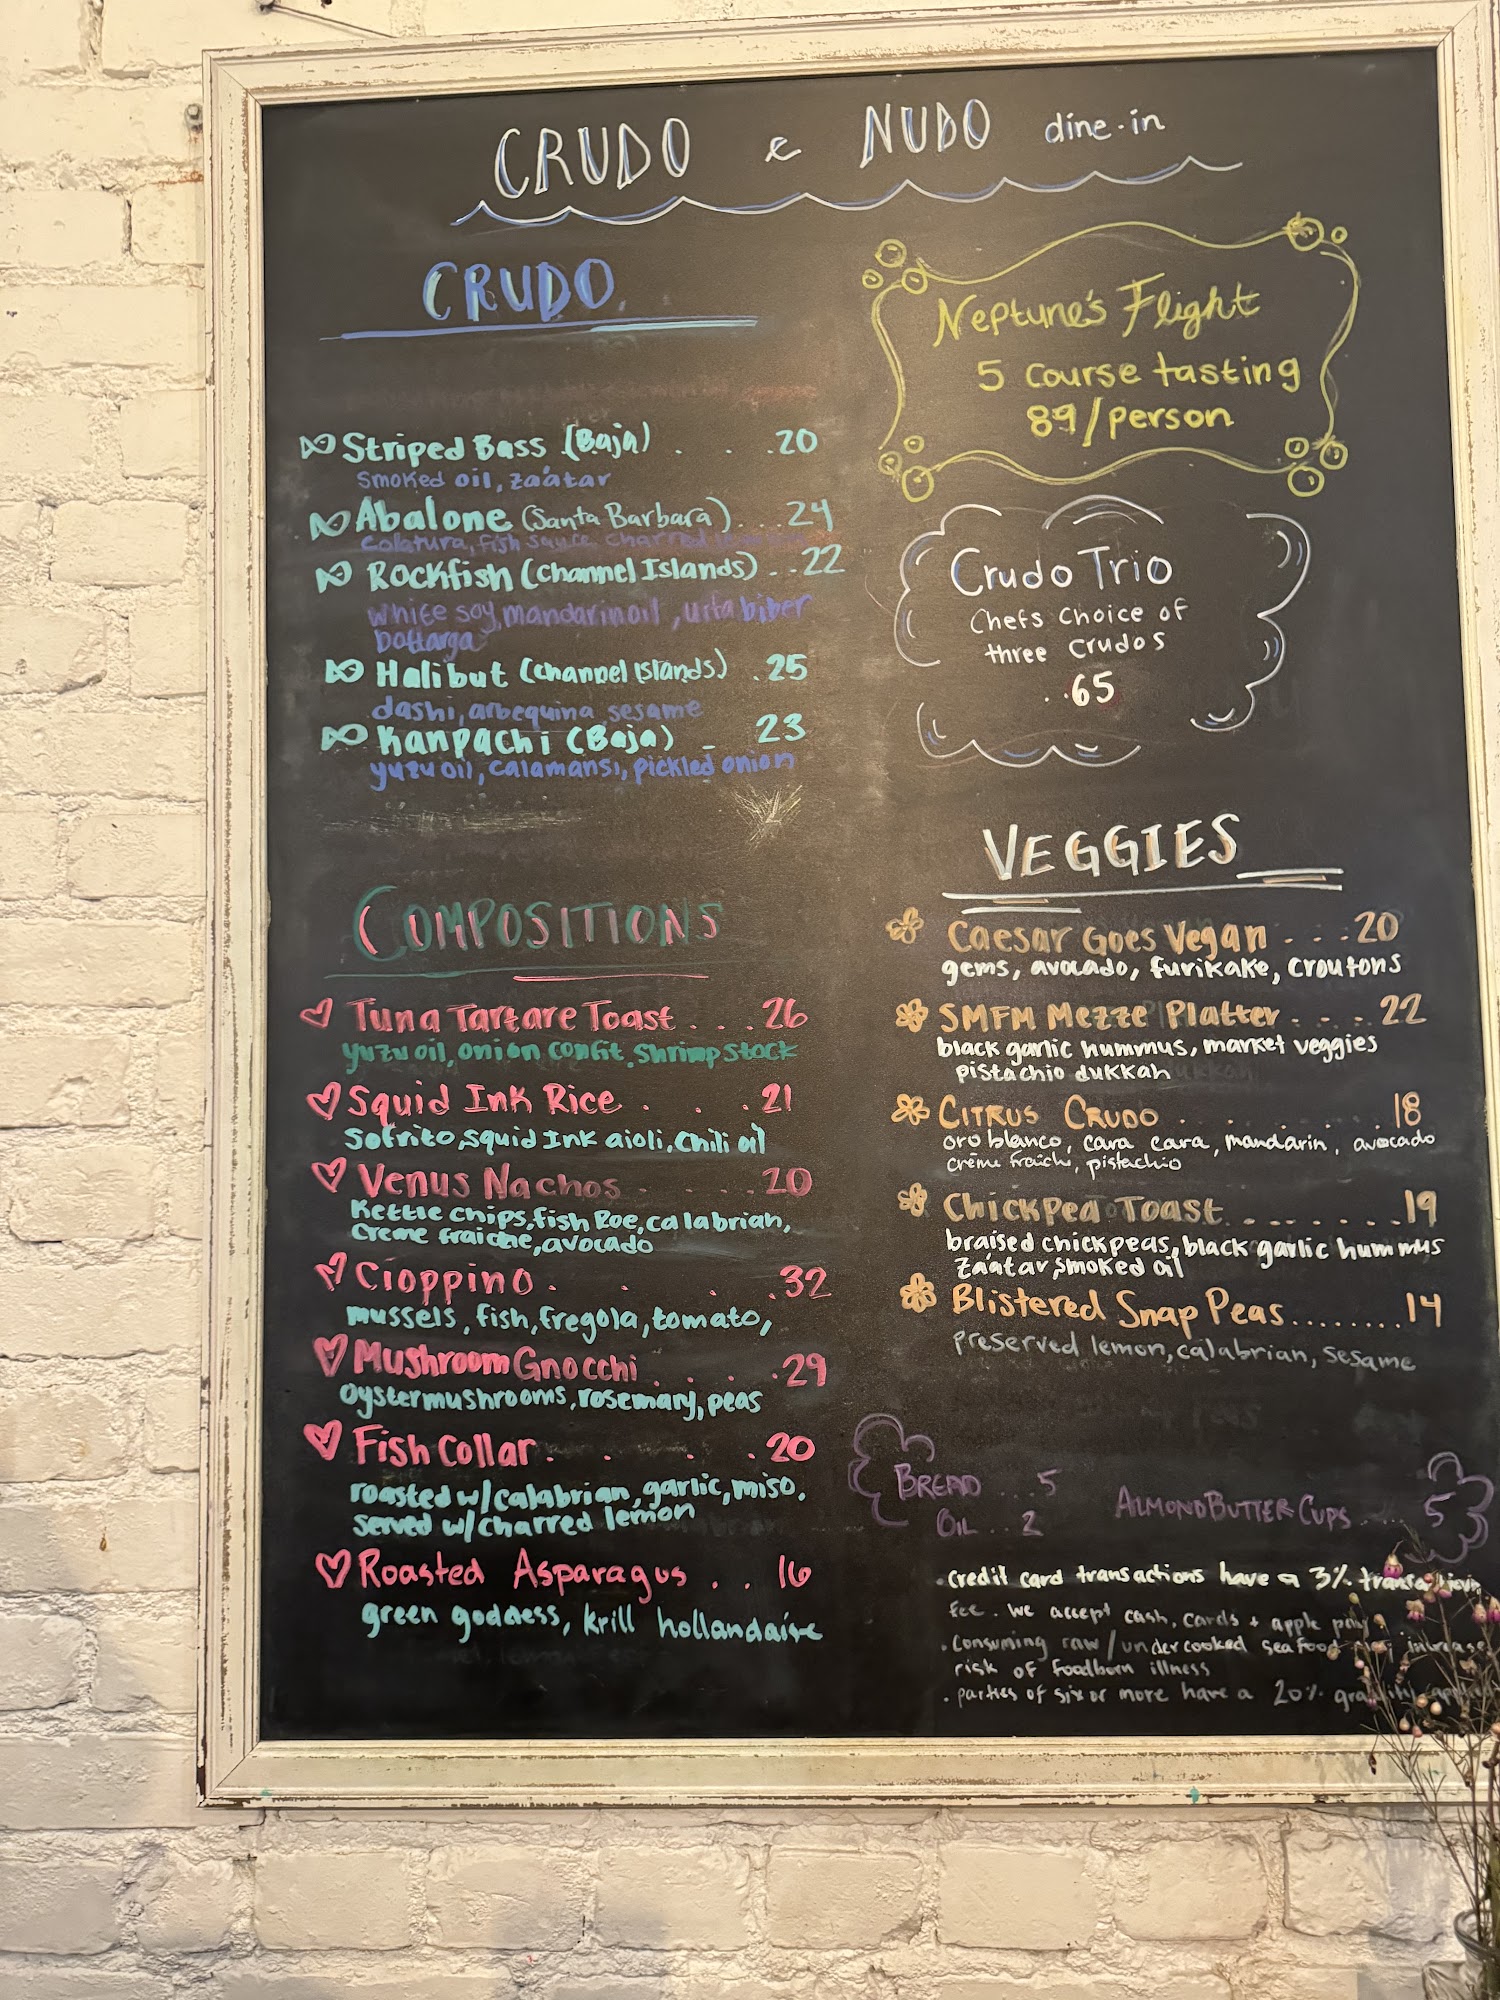 CRUDO e NUDO dine-in
CRUDO
Striped Bass (Baja) . . . 20
smoked oil, za'atar
Abalone (Santa Barbara) . . . 24
colatura, fish sauce, charred
Rockfish (Channel Islands) . . 22
white soy, mandarin oil, urfa biber
bottarga
Halibut (Channel Islands) . 25
dashi, arbequina, sesame
Kanpachi (Baja) - 23
yuzu oil, calamansi, pickled onion
COMPOSITIONS
Tuna Tartare Toast . . . 26
yuzu oil, onion confit, shrimp stock
Squid Ink Rice . . . 21
Sofrito, squid Ink aioli, Chili oil
Venus Nachos . . . . 20
Kettle chips, fish Roe, calabrian,
Creme fraiche, avocado
Cioppino . . . . 32
mussels, fish, fregola, tomato,
Mushroom Gnocchi . . . . 29
Oyster mushrooms, rosemary, peas
Fish Collar . . . . 20
roasted w/calabrian, garlic, miso,
served w/charred lemon
Roasted Asparagus . . 16
green goddess, krill hollandaise
Neptune's Flight
5 course tasting
89/person
Crudo Trio
Chefs Choice of
three Crudos
. . 65
VEGGIES
Caesar Goes Vegan . . . 20
gems, avocado, furikake, croutons
SMFM Mezze Platter . . . . 22
black garlic hummus, market veggies
pistachio dukkah
CITRUS CRUDO . . . . . . 18
oro blanco, cara cara, mandarin, avocado
crème fraîche, pistachio
Chickpea Toast . . . . . . . . 19
braised chickpeas, black garlic hummus
za'atar, smoked oil
Blistered Snap Peas........14
preserved lemon, calabrian, sesame
BREAD . . . 5
OIL . . 2
ALMOND BUTTER CUPS . . . . 5
. Credit card transactions have a 3% transaction
fee. We accept cash, cards + apple pay
. Consuming raw/undercooked seafood may increase
risk of foodborn illness
. parties of six or more have a 20% gratuity